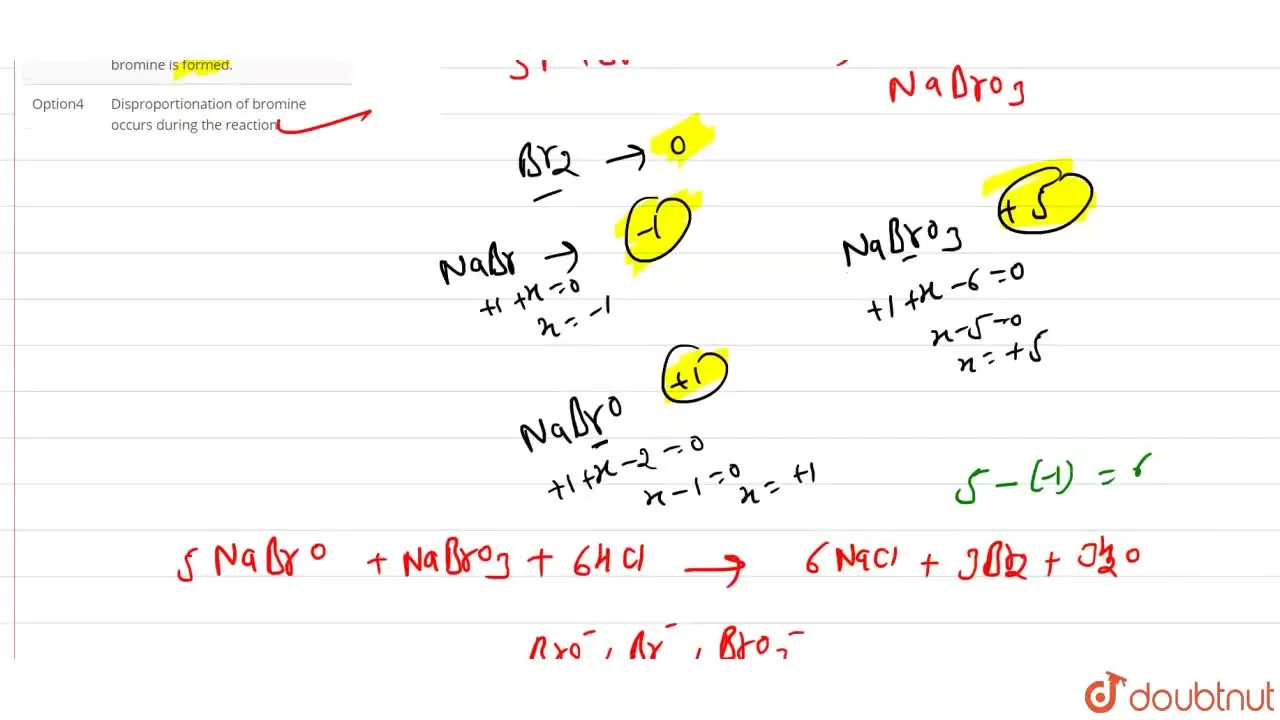 bromine is formed.
NaBrO3
Option4 Disproportionation of bromine
occurs during the reaction
Br2 → 0
NaBr → -1
+1+x=0
x=-1
NaBrO3 +5
+1+x-6=0
x-5=0
x=+5
NaBrO +1
+1+x-2=0
x-1=0 x=+1
5-(-1)=6
5NaBrO + NaBrO3 + 6HCl → 6NaCl + 3Br2 + 3H2O
BrO⁻, Br⁻, BrO3⁻
doubtnut